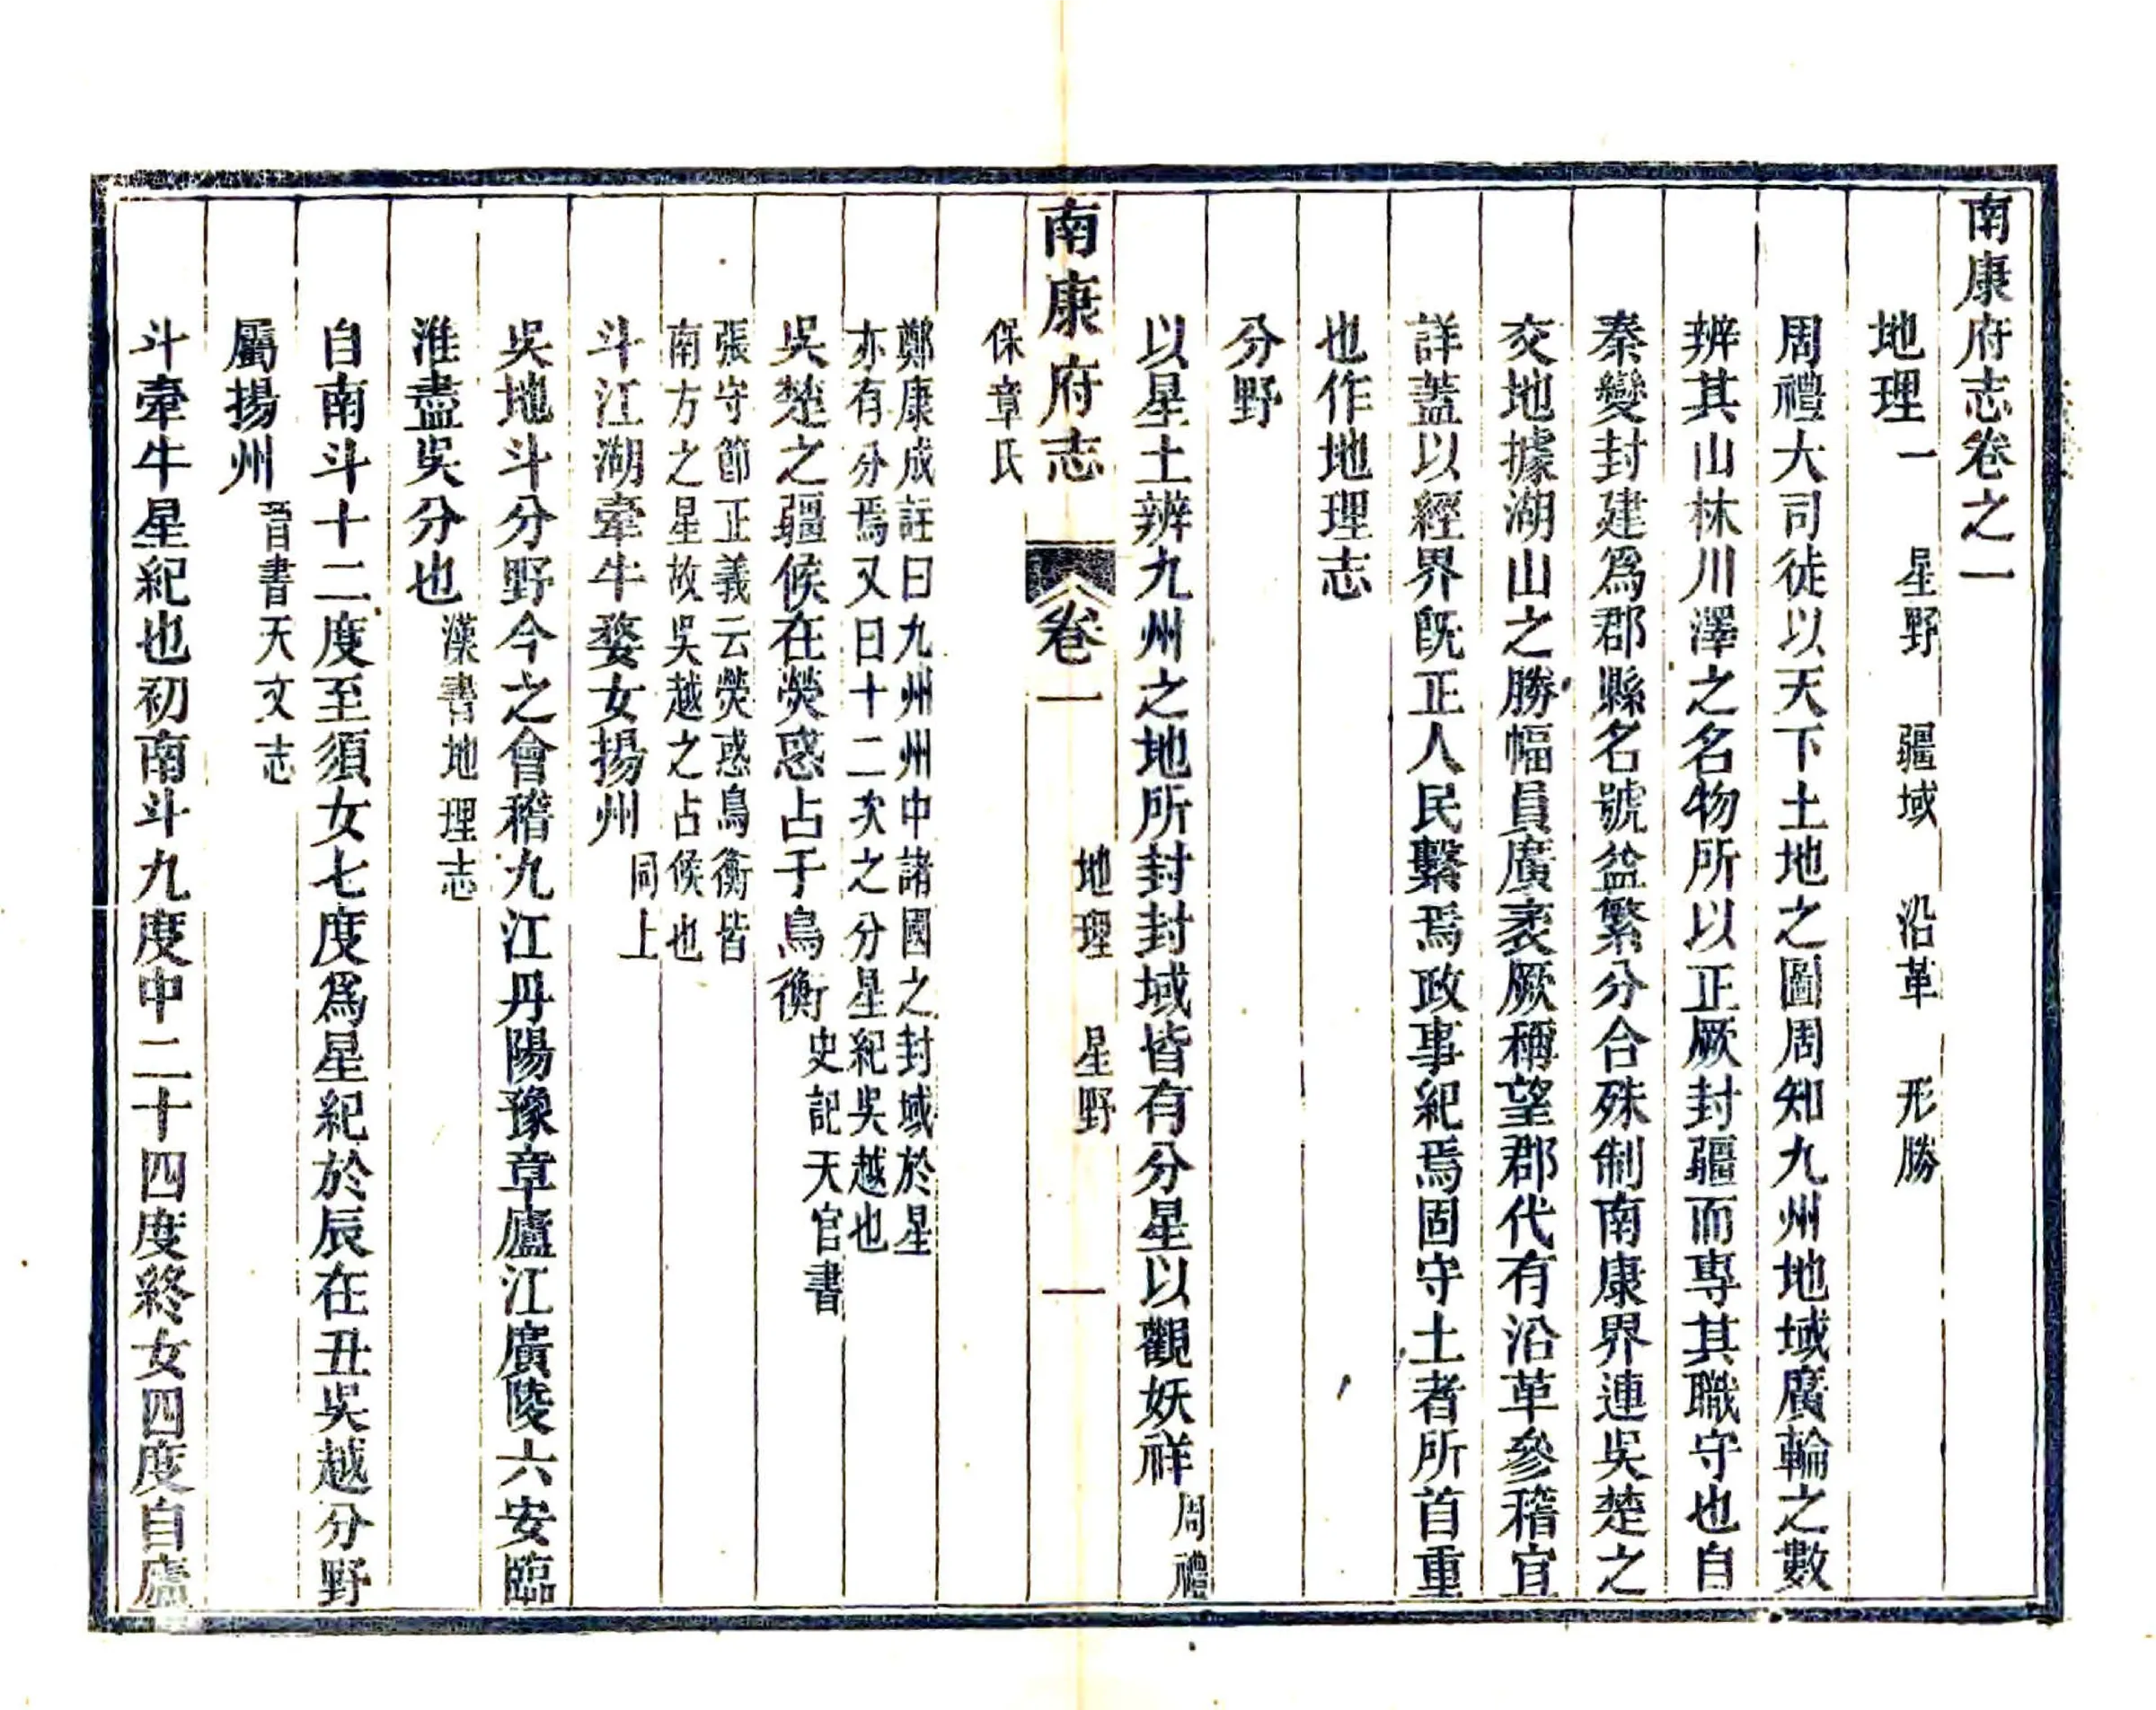 南康府志卷之一
地理一　星野　疆域　沿革　形勝
周禮大司徒以天下土地之圖周知九州地域廣輪之數
辨其山林川澤之名物所以正厥封疆而專其職守也自
秦變封建爲郡縣名號益繁分合殊制南康界連吳楚之
交地據湖山之勝幅員廣袤厥稱望郡代有沿革參稽宜
詳蓋以經界旣正人民繫焉政事紀焉固守土者所首重
也作地理志
分野
以星土辨九州之地所封封域皆有分星以觀妖祥周禮
南康府志　卷一　地理　星野　一
保章氏
鄭康成註曰九州州中諸國之封域於星
亦有分焉又曰十二次之分星紀吳越也
吳楚之疆候在熒惑占于鳥衡史記天官書
張守節正義云熒惑鳥衡皆
南方之星故吳越之占候也
斗江湖牽牛婺女揚州同上
吳地斗分野今之會稽九江丹陽豫章廬江廣陵六安臨
淮盡吳分也漢書地理志
自南斗十二度至須女七度爲星紀於辰在丑吳越分野
屬揚州晉書天文志
斗牽牛星紀也初南斗九度中二十四度終女四度自廬